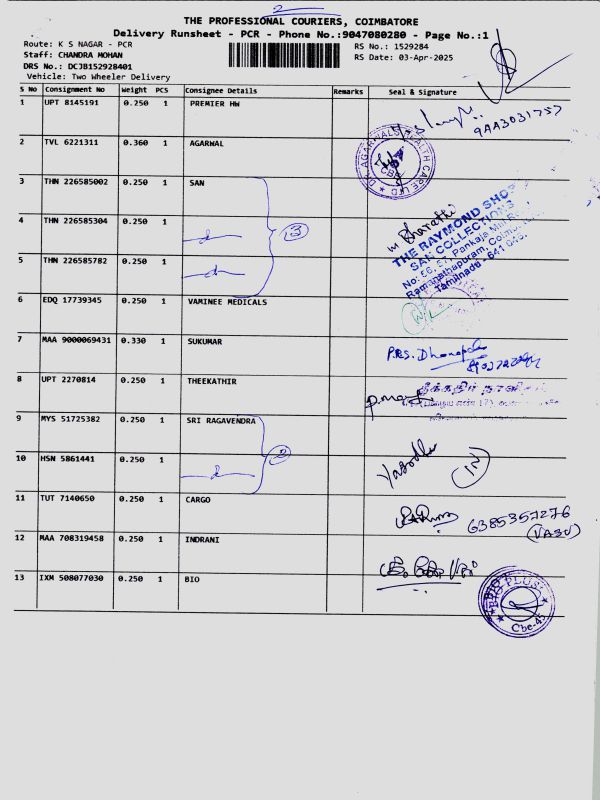 2
THE PROFESSIONAL COURIERS, COIMBATORE
Delivery Runsheet - PCR - Phone No.:9047080280 - Page No.:1
Route: K S NAGAR - PCR
RS No.: 1529284
Staff: CHANDRA MOHAN
RS Date: 03-Apr-2025
DRS No.: DCJB152928401
Vehicle: Two Wheeler Delivery
S No Consignment No Weight PCS Consignee Details Remarks Seal & Signature
1 UPT 8145191 0.250 1 PREMIER HW
9AA3031757
2 TVL 6221311 0.360 1 AGARWAL
DR. AGARWALS HEALTH CARE LTD
CBE
3 THN 226585002 0.250 1 SAN
4 THN 226585304 0.250 1
3
M Bharathi
THE RAYMOND SHOP
SAN COLLECTIONS
No: 56, 57, Pankaja Mill Road
Ramanathapuram, Coimbatore
Tamilnadu - 641 045.
5 THN 226585782 0.250 1
6 EDQ 17739345 0.250 1 VAMINEE MEDICALS
7 MAA 9000069431 0.330 1 SUKUMAR
P.R.S. Dhanapal
8 UPT 2270814 0.250 1 THEEKATHIR
தீக்கதிர்
9 MYS 51725382 0.250 1 SRI RAGAVENDRA
2
10 HSN 5861441 0.250 1
Yasodha
IN
11 TUT 7140650 0.250 1 CARGO
6385357276
(VASU)
12 MAA 708319458 0.250 1 INDRANI
13 IXM 508077030 0.250 1 BIO
BIO PLUS
Cbe-45